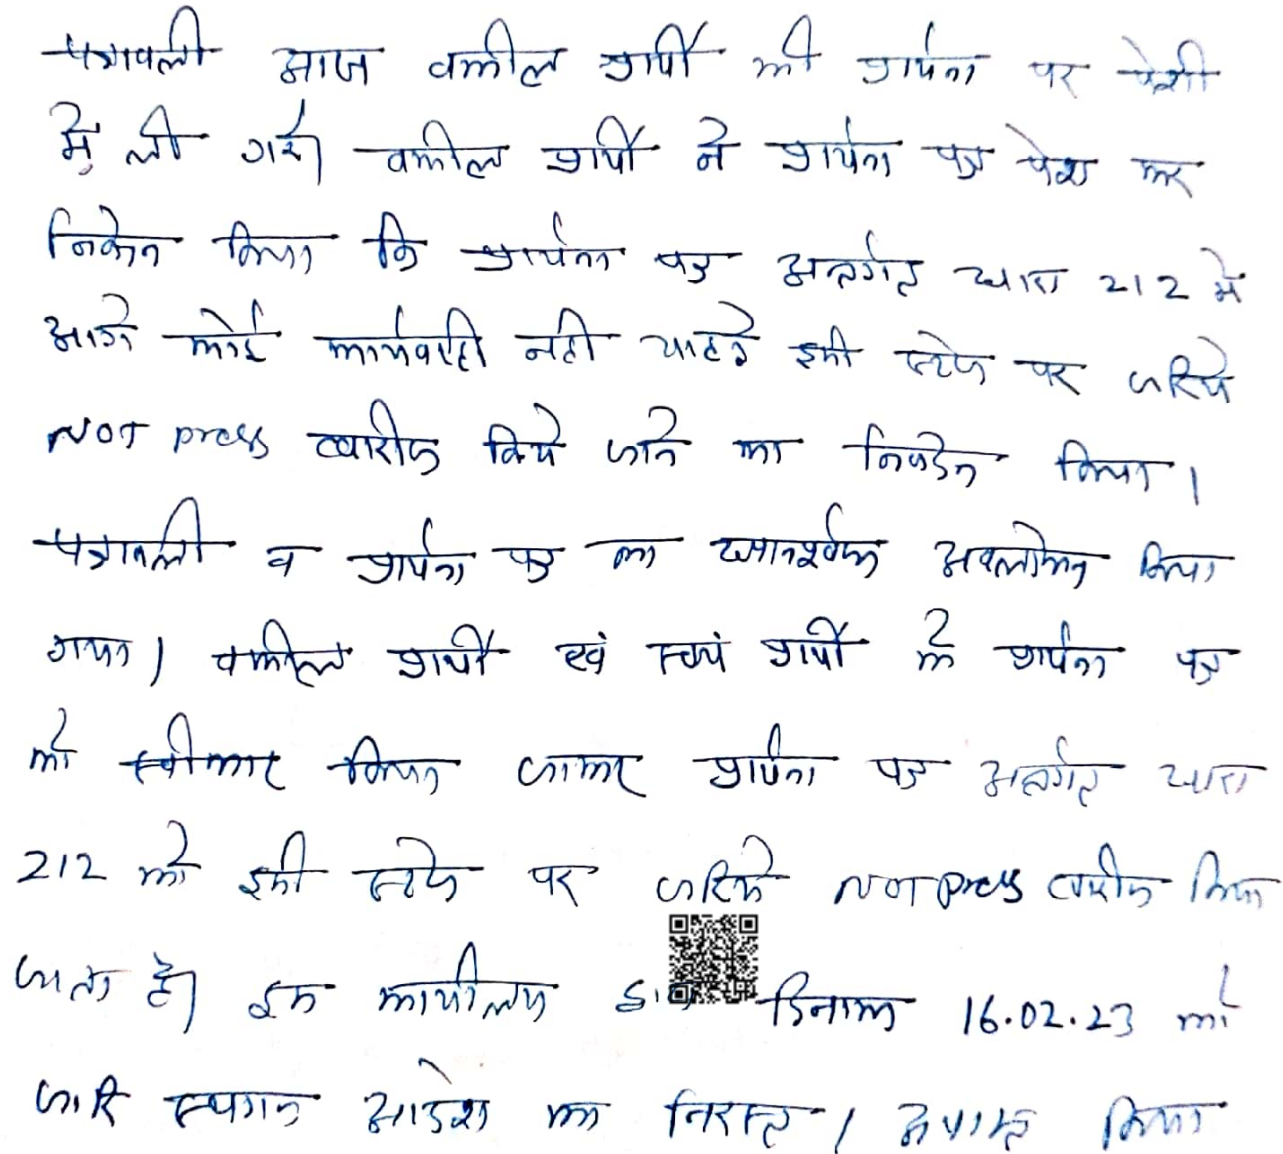 पत्रावली आज वकील प्रार्थी की प्रार्थना पर पेशी
में ली गई। वकील प्रार्थी ने प्रार्थना पत्र पेश कर
निवेदन किया कि प्रार्थना पत्र अन्तर्गत धारा 212 में
आगे कोई कार्यवाही नहीं चाहते इसी स्टेज पर जरिये
NOT press खारीज किये जाने का निवेदन किया।
पत्रावली व प्रार्थना पत्र का ध्यानपूर्वक अवलोकन किया
गया। वकील प्रार्थी एवं स्वयं प्रार्थी के प्रार्थना पत्र
को स्वीकार किया जाकर प्रार्थना पत्र अन्तर्गत धारा
212 को इसी स्टेज पर जरिये NOT press खारीज किया
जाता है। इस कार्यालय दिनांक 16.02.23 को
जारि स्थगन आदेश को निरस्त / समाप्त किया